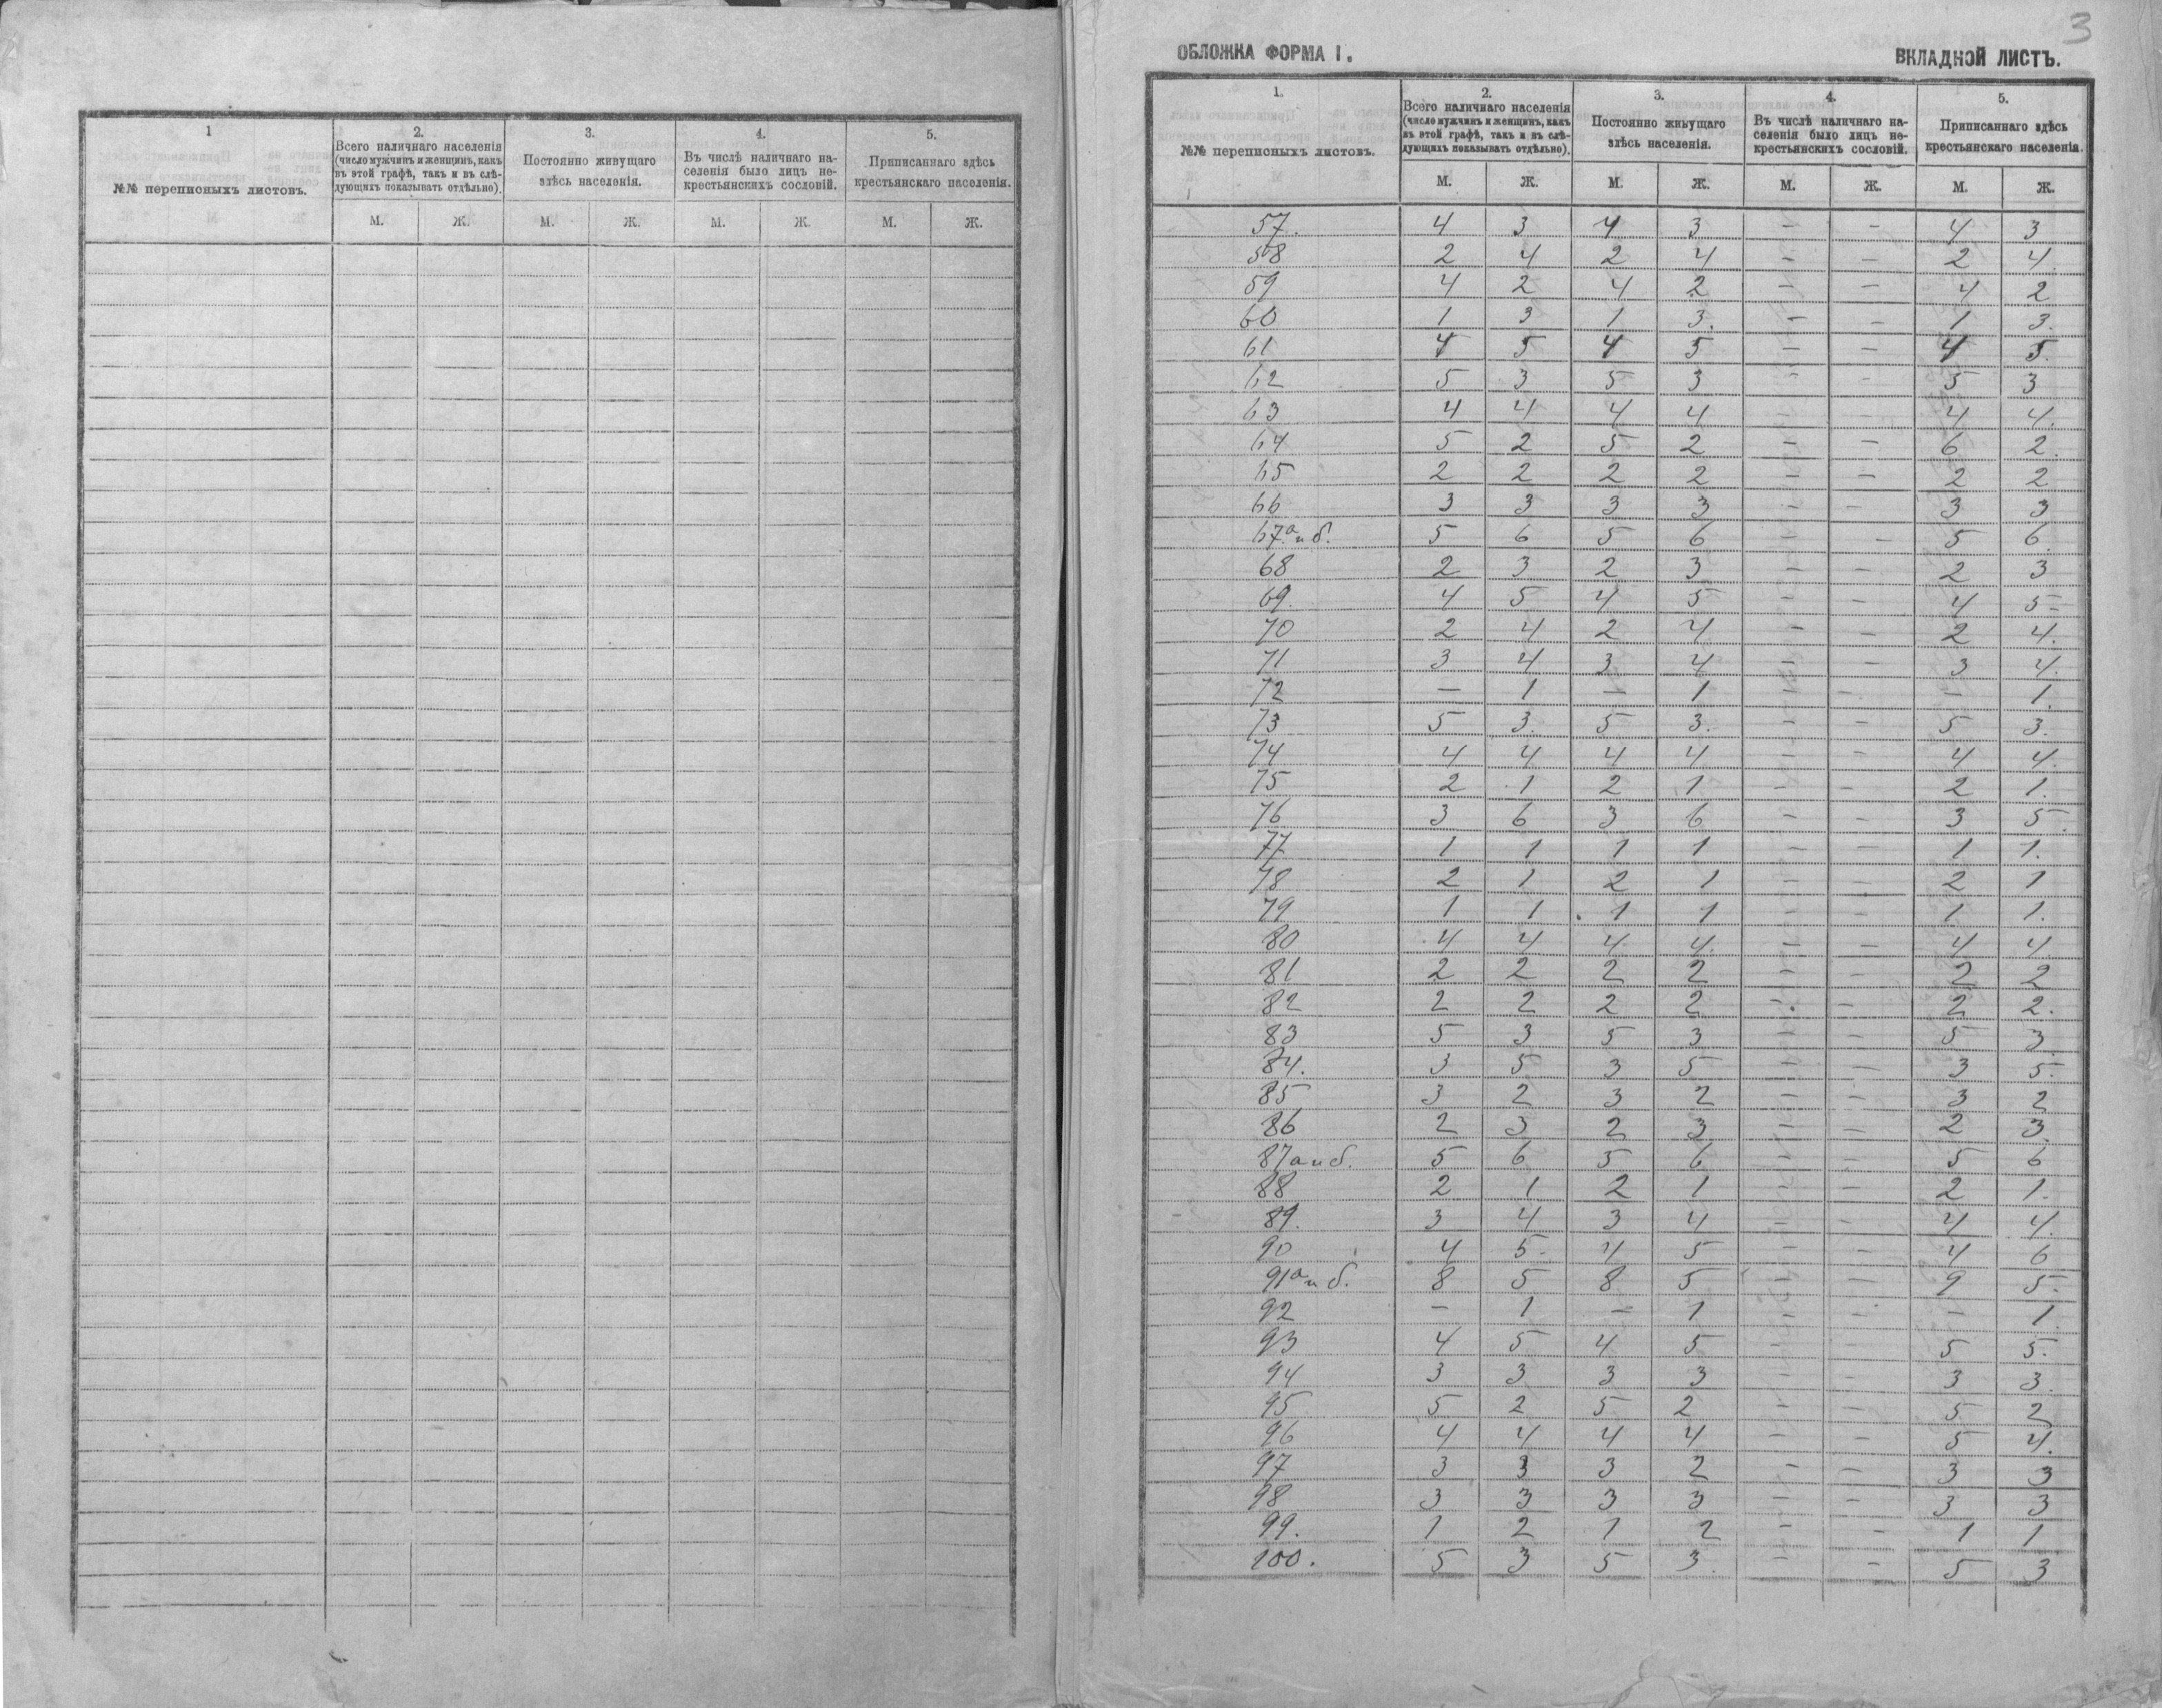 1
2.
3.
4.
5.
№№ переписныхъ листовъ.
Всего наличнаго населенія
(число мужчинъ и женщинъ, какъ
въ этой графѣ, такъ и въ слѣ-
дующихъ показывать отдѣльно).
Постоянно живущаго
здѣсь населенія.
Въ числѣ наличнаго на-
селенія было лицъ не-
крестьянскихъ сословій.
Приписаннаго здѣсь
крестьянскаго населенія.
М. Ж. М. Ж. М. Ж. М. Ж.
3
ОБЛОЖКА ФОРМА I. ВКЛАДНОЙ ЛИСТЪ.
1.
2.
3.
4.
5.
№№ переписныхъ листовъ.
Всего наличнаго населенія
(число мужчинъ и женщинъ, какъ
въ этой графѣ, такъ и въ слѣ-
дующихъ показывать отдѣльно).
Постоянно живущаго
здѣсь населенія.
Въ числѣ наличнаго на-
селенія было лицъ не-
крестьянскихъ сословій.
Приписаннаго здѣсь
крестьянскаго населенія.
М. Ж. М. Ж. М. Ж. М. Ж.
57. 4 3 4 3 - - 4 3
58 2 4 2 4 - - 2 4.
59 4 2 4 2 - - 4 2
60 1 3 1 3. - - 1 3.
61 4 5 4 5 - - 4 5.
62 5 3 5 3 - - 5 3
63 4 4 4 4 - - 4 4.
64 5 2 5 2 - - 6 2.
65 2 2 2 2 - - 2 2
66 3 3 3 3 - - 3 3
67 а и б. 5 6 5 6 - - 5 6
68 2 3 2 3 - - 2 3
69. 4 5 4 5 - - 4 5-
70 2 4 2 4 - - 2 4.
71 3 4 3 4 - - 3 4.
72 - 1 - 1 - - - 1.
73 5 3. 5 3. - - 5 3.
74 4 4 4 4 - - 4 4.
75 2 1 2 1 - - 2 1.
76 3 6 3 6 - - 3 5.
77 1 1 1 1 - - 1 1.
78 2 1 2 1 - - 2 1
79 1 1 1 1 - - 1 1.
80 4 4 4 4. - - 4 4.
81 2 2 2 2 - - 2 2
82 2 2 2 2 - - 2 2.
83 5 3 5 3 - - 5 3.
84. 3 5 3 5 - - 3 5.
85 3 2 3 2 - - 3 2
86 2 3 2 3 - - 2 3.
87 а и б. 5 6 5 6 - - 5 6
88 2 1 2 1 - - 2 1.
89. 3 4 3 4 - - 4 4.
90 4 5. 4 5 - - 4 6
91 а и б. 8 5 8 5 - - 9 5.
92 - 1 - 1 - - - 1.
93 4 5 4 5 - - 5 5.
94 3 3 3 3 - - 3 3.
95 5 2 5 2 - - 5 2
96 4 4 4 4 - - 5 4.
97 3 3 3 2 - - 3 3
98 3 3 3 3 - - 3 3
99. 1 2 1 2 - - 1 1
100. 5 3 5 3. - - 5 3